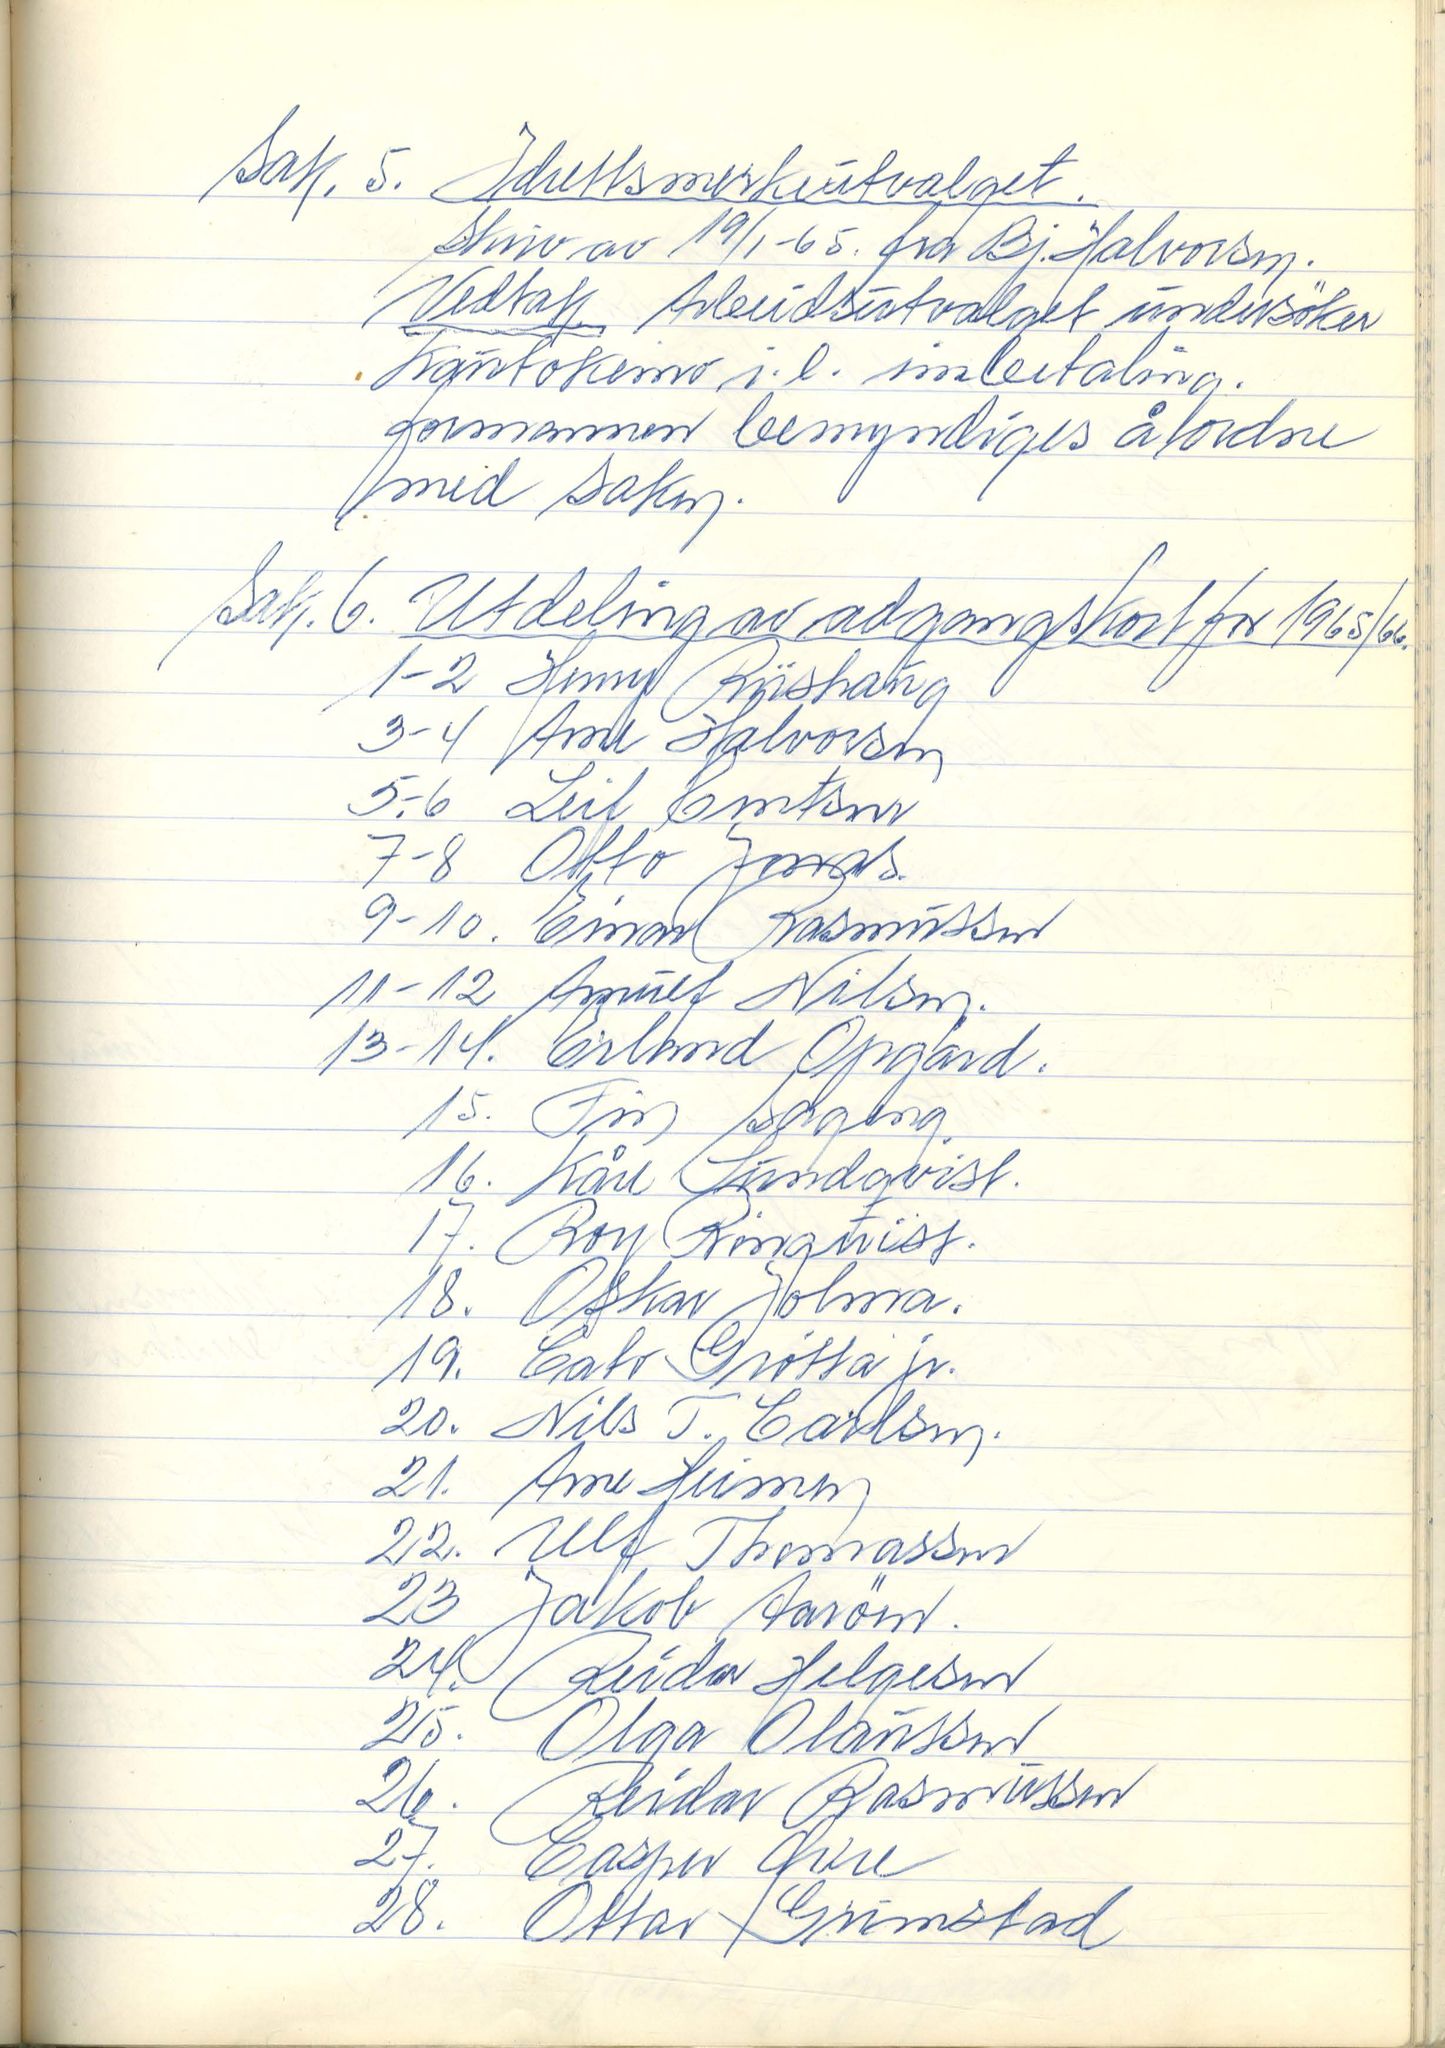 Sak. 5. Idrettsmerkeutvalget.
Skriv av 19/1-65. fra Bj. Halvorsen.
Vedtak Arbeidsutvalget undersöker
Kautokeino i.l. innbetaling.
formannen bemyndiges å ordne
med saken.
Sak. 6. Utdeling av adgangskort for 1965/66.
1-2 Henry Riishaug
3-4 Arne Halvorsen
5-6 Leif Berntsen
7-8 Otto
9-10. Einar Rasmussen
11-12 Arnulf Nilsen.
13-14. Erland Opgård.
15. Finn Sageng
16. Kåre Lundqvist.
17. Roy Ringqvist.
18. Oskar Jolma.
19. Cato Grötta jr.
20. Nils T. Carlsen.
21. Arne Heimen
22. Ulf Thomassen
23 Jakob Aaröen.
24. Reidar Helgesen
25. Olga Olaussen
26. Reidar Rasmussen
27. Casper
28. Ottar Grimstad